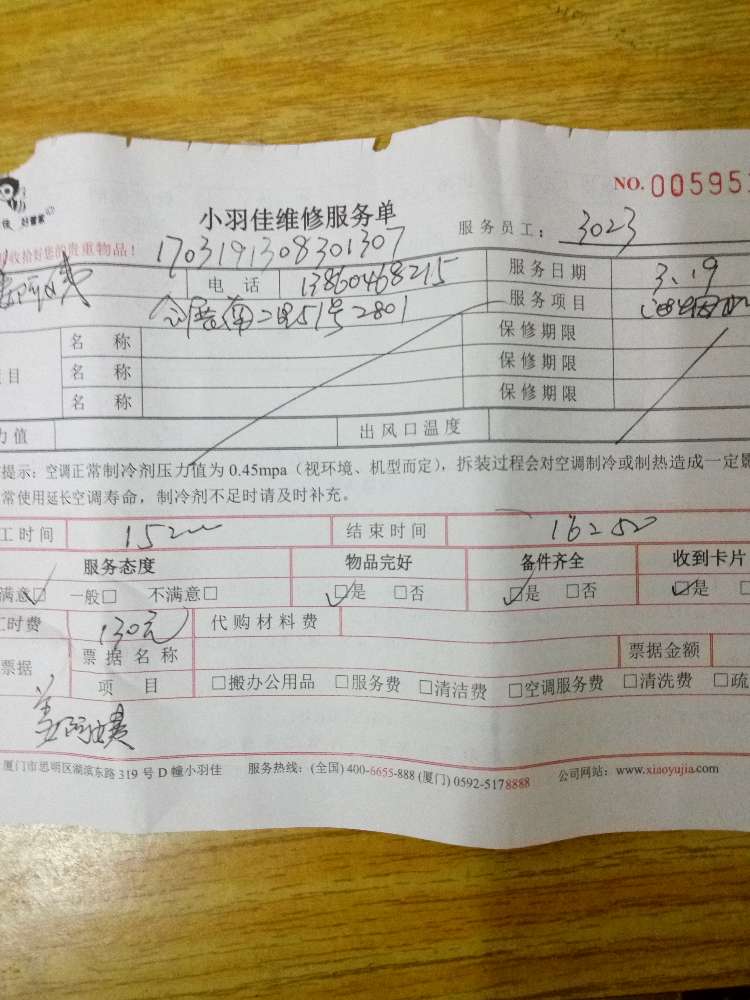 NO. 005951
小羽佳维修服务单
服务员工: 3023
收拾好您的贵重物品! 1703191308301307
电话 13860468215 服务日期 3.19
南二里51号2801 服务项目
名称 保修期限
目 名称 保修期限
名称 保修期限
力值 出风口温度
提示: 空调正常制冷剂压力值为 0.45mpa (视环境、机型而定), 拆装过程会对空调制冷或制热造成一定影
常使用延长空调寿命, 制冷剂不足时请及时补充。
工时间 15 结束时间 16
服务态度 物品完好 备件齐全 收到卡片
满意☑ 一般□ 不满意□ ☑是 □否 ☑是 □否 ☑是
工时费 130元 代购材料费
票据 票据名称 票据金额
项目 □搬办公用品 □服务费 □清洁费 □空调服务费 □清洗费 □疏
厦门市思明区湖滨东路 319 号 D 幢小羽佳 服务热线: (全国) 400-6655-888 (厦门) 0592-5178888 公司网站: www.xiaoyujia.com